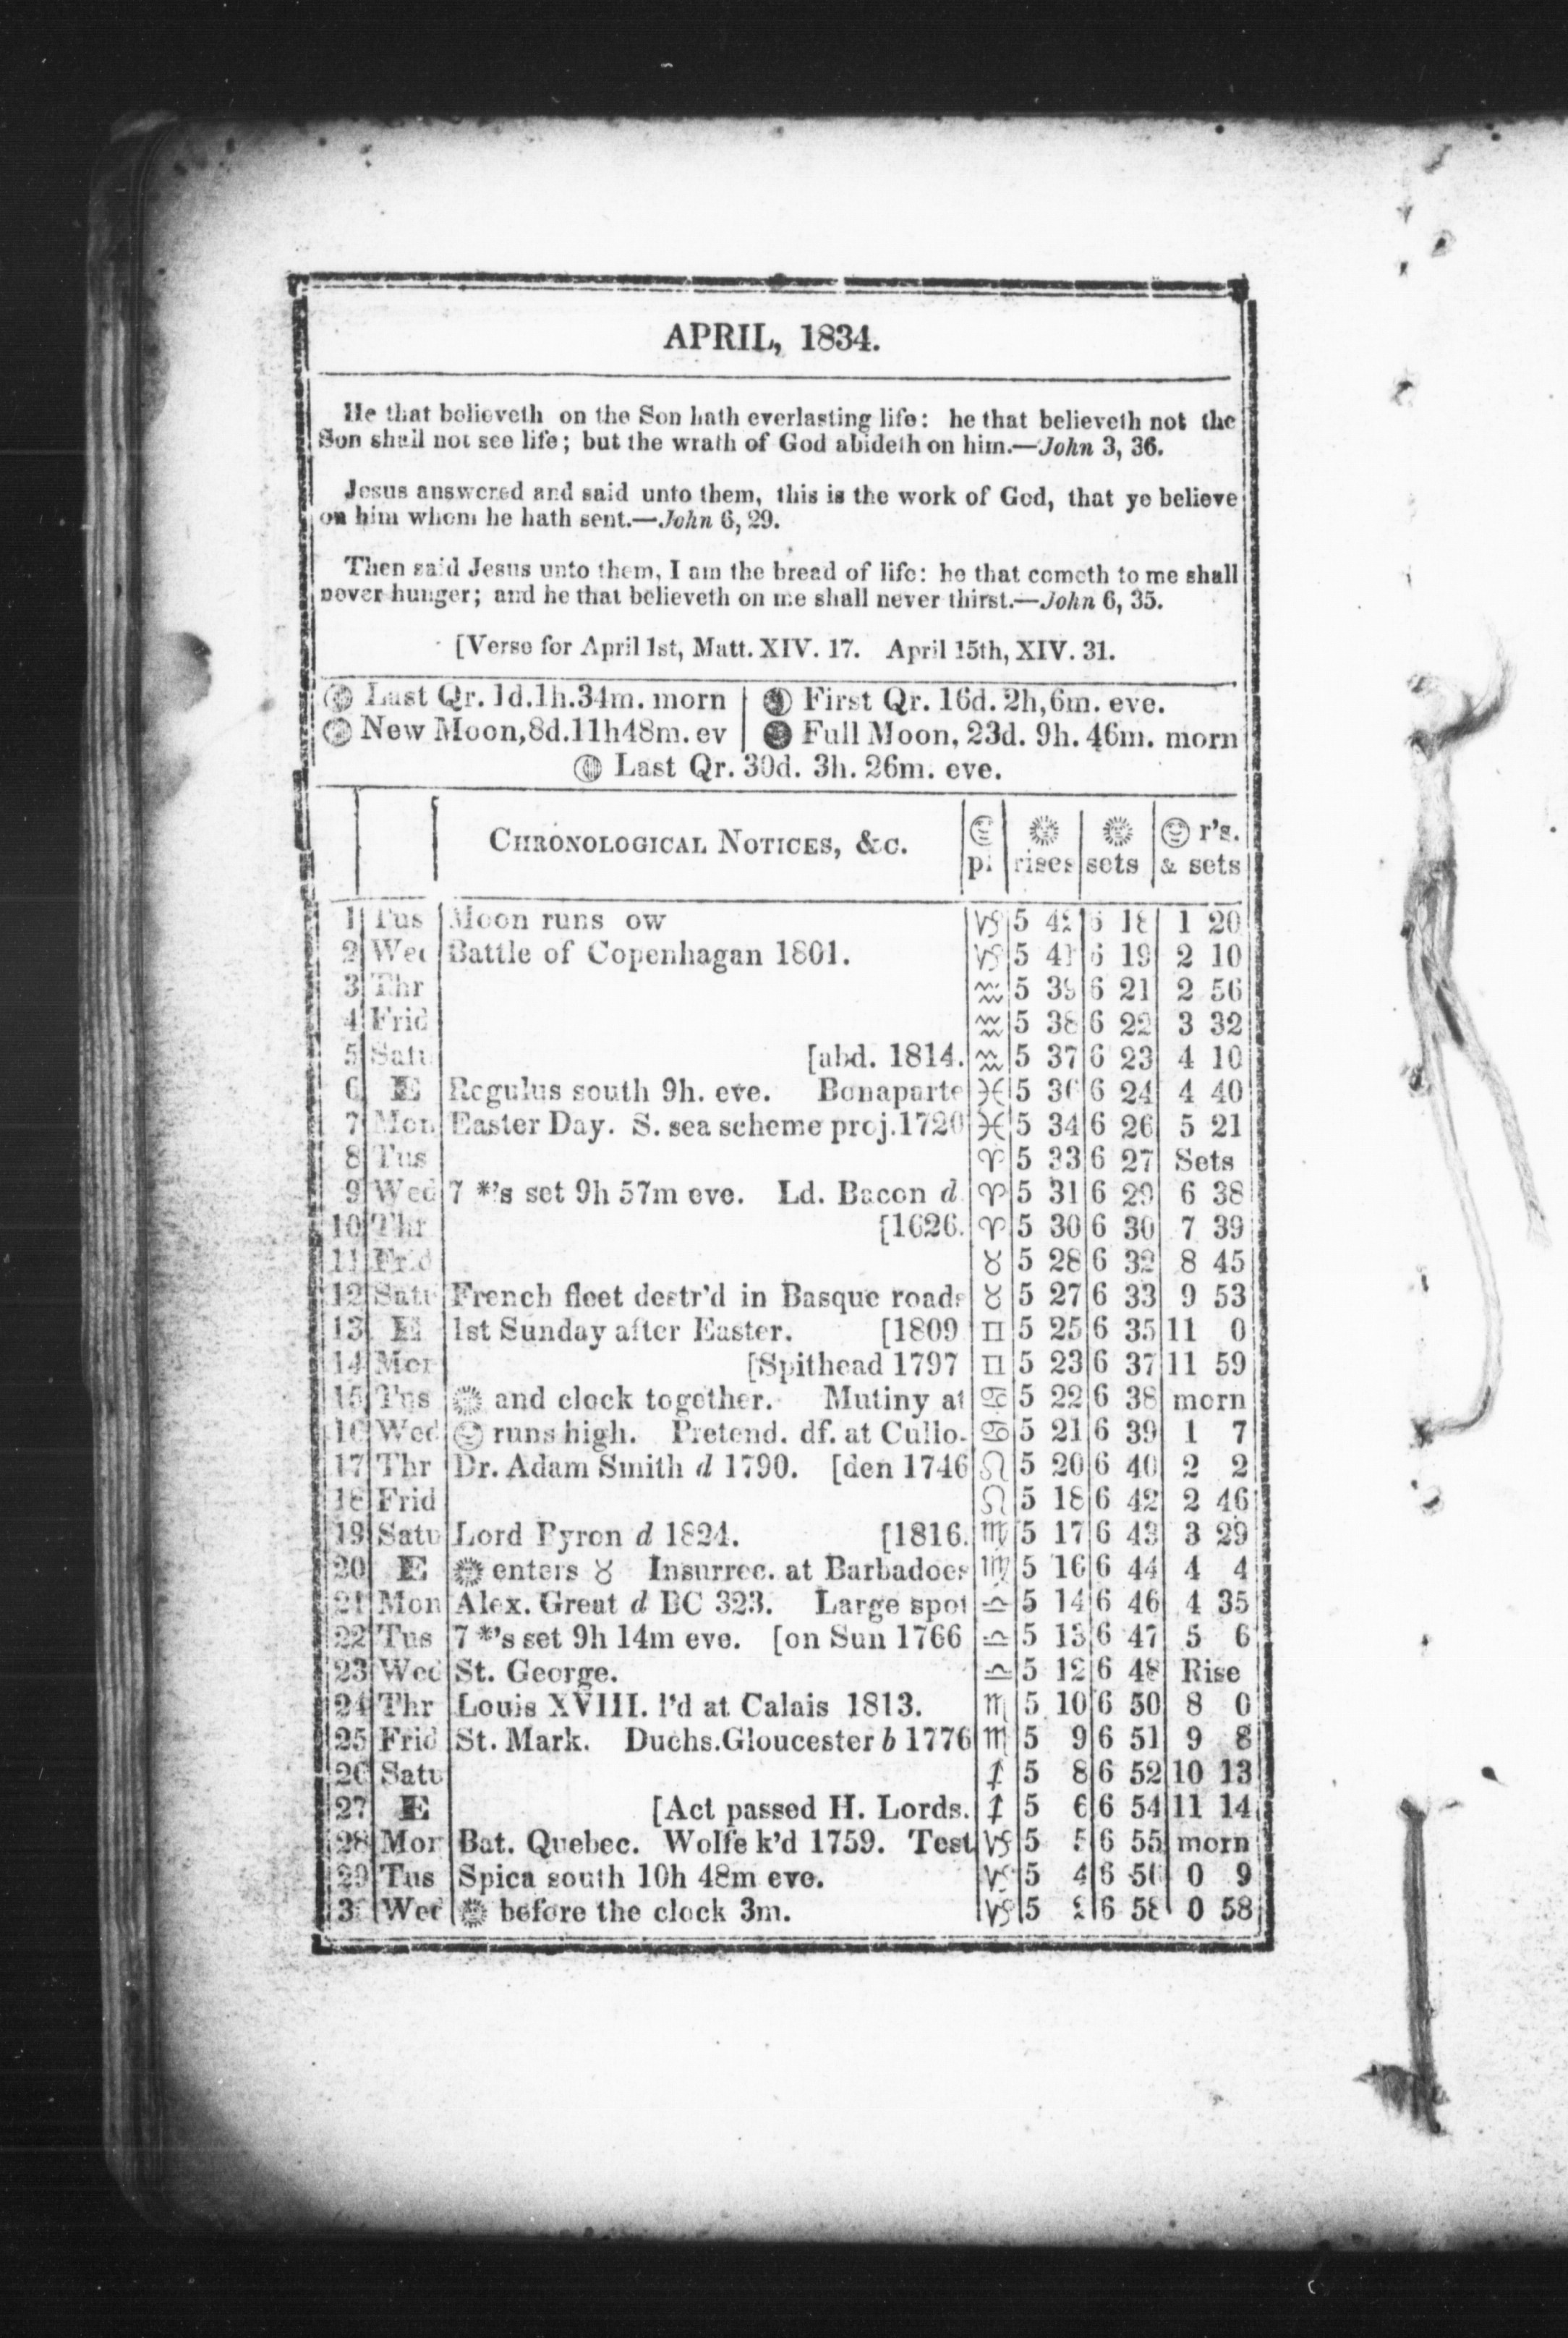 APRIL, 1834.
He that believeth on the Son hath everlasting life: he that believeth not the
Son shall not see life; but the wrath of God abideth on him.—John 3, 36.
Jesus answered and said unto them, this is the work of God, that ye believe
on him whom he hath sent.—John 6, 29.
Then said Jesus unto them, I am the bread of life: he that cometh to me shall
never hunger; and he that believeth on me shall never thirst.—John 6, 35.
[Verse for April 1st, Matt. XIV. 17. April 15th, XIV. 31.
Last Qr. 1d.1h.34m. morn | First Qr. 16d. 2h,6m. eve.
New Moon,8d.11h48m. ev | Full Moon, 23d. 9h. 46m. morn
Last Qr. 30d. 3h. 26m. eve.
CHRONOLOGICAL NOTICES, &c. pl rises sets r's. & sets
1 Tus Moon runs ow ♑ 5 42 6 18 1 20
2 Wed Battle of Copenhagan 1801. ♑ 5 41 6 19 2 10
3 Thr ♒ 5 39 6 21 2 56
4 Frid ♒ 5 38 6 22 3 32
5 Satu [abd. 1814. ♒ 5 37 6 23 4 10
6 E Regulus south 9h. eve. Bonaparte ♓ 5 36 6 24 4 40
7 Mon Easter Day. S. sea scheme proj.1720 ♓ 5 34 6 26 5 21
8 Tus ♈ 5 33 6 27 Sets
9 Wed 7 *'s set 9h 57m eve. Ld. Bacon d ♈ 5 31 6 29 6 38
10 Thr [1626. ♈ 5 30 6 30 7 39
11 Frid ♉ 5 28 6 32 8 45
12 Satu French fleet destr'd in Basque roads ♉ 5 27 6 33 9 53
13 E 1st Sunday after Easter. [1809 ♊ 5 25 6 35 11 0
14 Mon [Spithead 1797 ♊ 5 23 6 37 11 59
15 Tus ☀ and clock together. Mutiny at ♋ 5 22 6 38 morn
16 Wed runs high. Pretend. df. at Cullo- ♋ 5 21 6 39 1 7
17 Thr Dr. Adam Smith d 1790. [den 1746 ♌ 5 20 6 40 2 2
18 Frid ♌ 5 18 6 42 2 46
19 Satu Lord Byron d 1824. [1816. ♍ 5 17 6 43 3 29
20 E ☀ enters ♉ Insurrec. at Barbadoes ♍ 5 16 6 44 4 4
21 Mon Alex. Great d BC 323. Large spot ♎ 5 14 6 46 4 35
22 Tus 7 *'s set 9h 14m eve. [on Sun 1766 ♎ 5 13 6 47 5 6
23 Wed St. George. ♎ 5 12 6 48 Rise
24 Thr Louis XVIII. l'd at Calais 1813. ♏ 5 10 6 50 8 0
25 Frid St. Mark. Duchs.Gloucester b 1776 ♏ 5 9 6 51 9 8
26 Satu ♐ 5 8 6 52 10 13
27 E [Act passed H. Lords. ♐ 5 6 6 54 11 14
28 Mon Bat. Quebec. Wolfe k'd 1759. Test ♑ 5 5 6 55 morn
29 Tus Spica south 10h 48m eve. ♑ 5 4 6 56 0 9
3 Wed ☀ before the clock 3m. ♑ 5 2 6 58 0 58